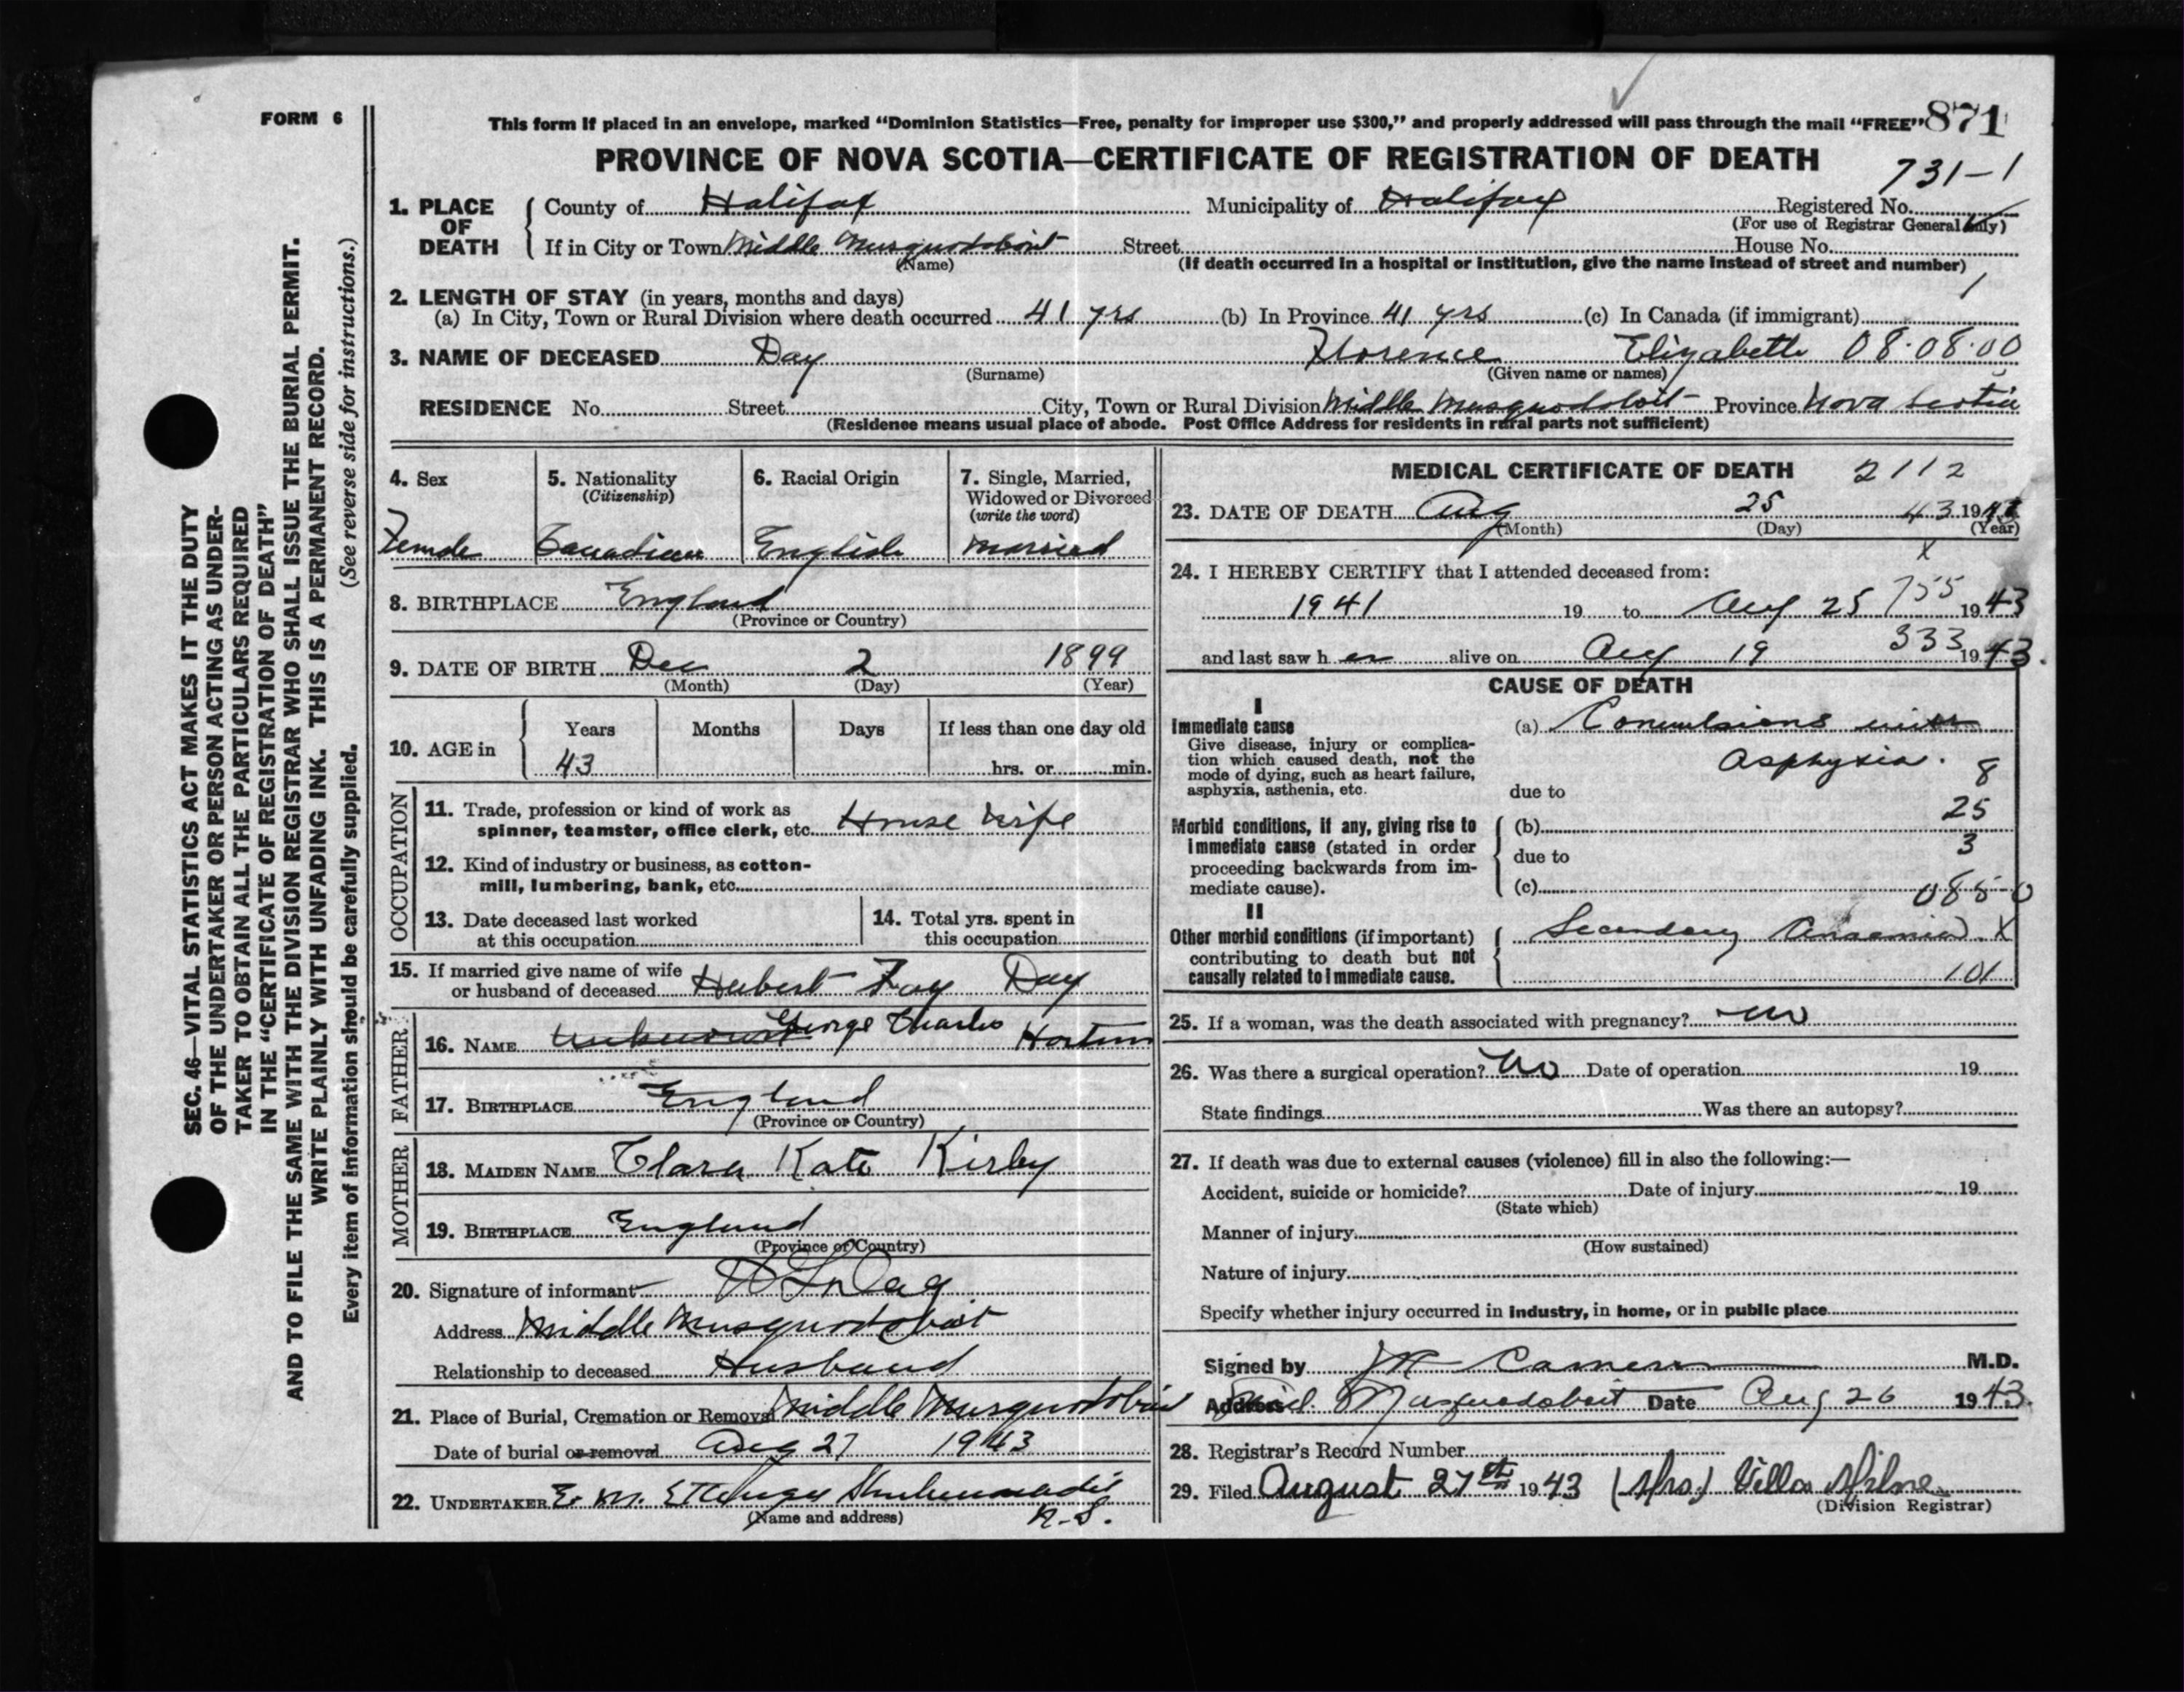 FORM 6
This form if placed in an envelope, marked “Dominion Statistics—Free, penalty for improper use $300,” and properly addressed will pass through the mail “FREE” 871
PROVINCE OF NOVA SCOTIA—CERTIFICATE OF REGISTRATION OF DEATH
731-1
1. PLACE OF DEATH County of Halifax Municipality of Halifax Registered No.
(For use of Registrar General only)
If in City or Town Middle Musquodoboit Street House No.
(Name) (If death occurred in a hospital or institution, give the name instead of street and number)
2. LENGTH OF STAY (in years, months and days) 1
(a) In City, Town or Rural Division where death occurred 41 yrs (b) In Province 41 yrs (c) In Canada (if immigrant)
3. NAME OF DECEASED Day Florence Elizabeth 08·08·00
(Surname) (Given name or names)
RESIDENCE No. Street City, Town or Rural Division Middle Musquodoboit Province Nova Scotia
(Residence means usual place of abode. Post Office Address for residents in rural parts not sufficient)
4. Sex 5. Nationality (Citizenship) 6. Racial Origin 7. Single, Married, Widowed or Divorced (write the word)
Female Canadian English married
8. BIRTHPLACE England
(Province or Country)
9. DATE OF BIRTH Dec 2 1899
(Month) (Day) (Year)
10. AGE in Years Months Days If less than one day old
43 hrs. or min.
OCCUPATION
11. Trade, profession or kind of work as
spinner, teamster, office clerk, etc. House wife
12. Kind of industry or business, as cotton-
mill, lumbering, bank, etc.
13. Date deceased last worked at this occupation
14. Total yrs. spent in this occupation
15. If married give name of wife
or husband of deceased Hubert Day
FATHER
16. NAME Unknown George Charles Horton
17. BIRTHPLACE England
(Province or Country)
MOTHER
18. MAIDEN NAME Clara Kate Kirby
19. BIRTHPLACE England
(Province or Country)
20. Signature of informant Day
Address Middle Musquodoboit
Relationship to deceased Husband
21. Place of Burial, Cremation or Removal Middle Musquodoboit
Date of burial or removal Aug 27 1943
22. UNDERTAKER E. M. Shubenacadie
(Name and address) N.S.
MEDICAL CERTIFICATE OF DEATH 2112
23. DATE OF DEATH Aug 25 43 19
(Month) (Day) (Year)
x
24. I HEREBY CERTIFY that I attended deceased from:
1941 19 to Aug 25 755 1943
and last saw h er alive on Aug 19 333 1943.
CAUSE OF DEATH
I
Immediate cause (a) Convulsions with
Asphyxia.
Give disease, injury or complica-
tion which caused death, not the
mode of dying, such as heart failure,
asphyxia, asthenia, etc. due to
8
25
3
Morbid conditions, if any, giving rise to (b)
immediate cause (stated in order due to
proceeding backwards from im-
mediate cause). (c)
II
Other morbid conditions (if important) Secondary Anaemia X
contributing to death but not
causally related to immediate cause. 101
25. If a woman, was the death associated with pregnancy? no
26. Was there a surgical operation? No Date of operation 19
State findings Was there an autopsy?
27. If death was due to external causes (violence) fill in also the following:—
Accident, suicide or homicide? Date of injury 19
(State which)
Manner of injury
(How sustained)
Nature of injury
Specify whether injury occurred in industry, in home, or in public place
Signed by Cameron M.D.
Address Musquodoboit Date Aug 26 1943.
28. Registrar's Record Number
29. Filed August 27th 1943 (Mrs.) Villa Milne
(Division Registrar)
SEC. 46—VITAL STATISTICS ACT MAKES IT THE DUTY
OF THE UNDERTAKER OR PERSON ACTING AS UNDER-
TAKER TO OBTAIN ALL THE PARTICULARS REQUIRED
IN THE “CERTIFICATE OF REGISTRATION OF DEATH”
AND TO FILE THE SAME WITH THE DIVISION REGISTRAR WHO SHALL ISSUE THE BURIAL PERMIT.
WRITE PLAINLY WITH UNFADING INK. THIS IS A PERMANENT RECORD.
Every item of information should be carefully supplied. (See reverse side for instructions.)